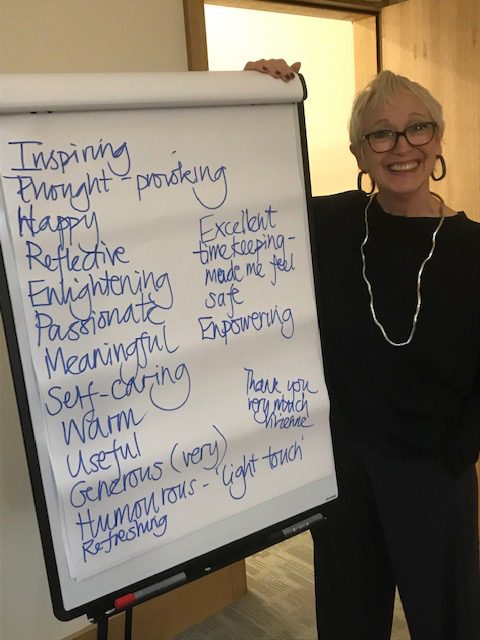 Inspiring
Thought-provoking
Happy
Reflective
Enlightening
Passionate
Meaningful
Self-caring
Warm
Useful
Generous (very)
Humourous - 'Light touch'
Refreshing
Excellent
timekeeping -
made me feel
safe
Empowering
Thank you
very